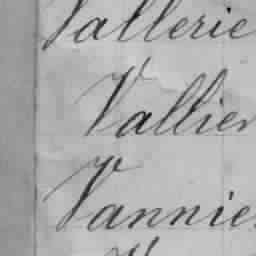 Vallerie
Vallier
Vannie